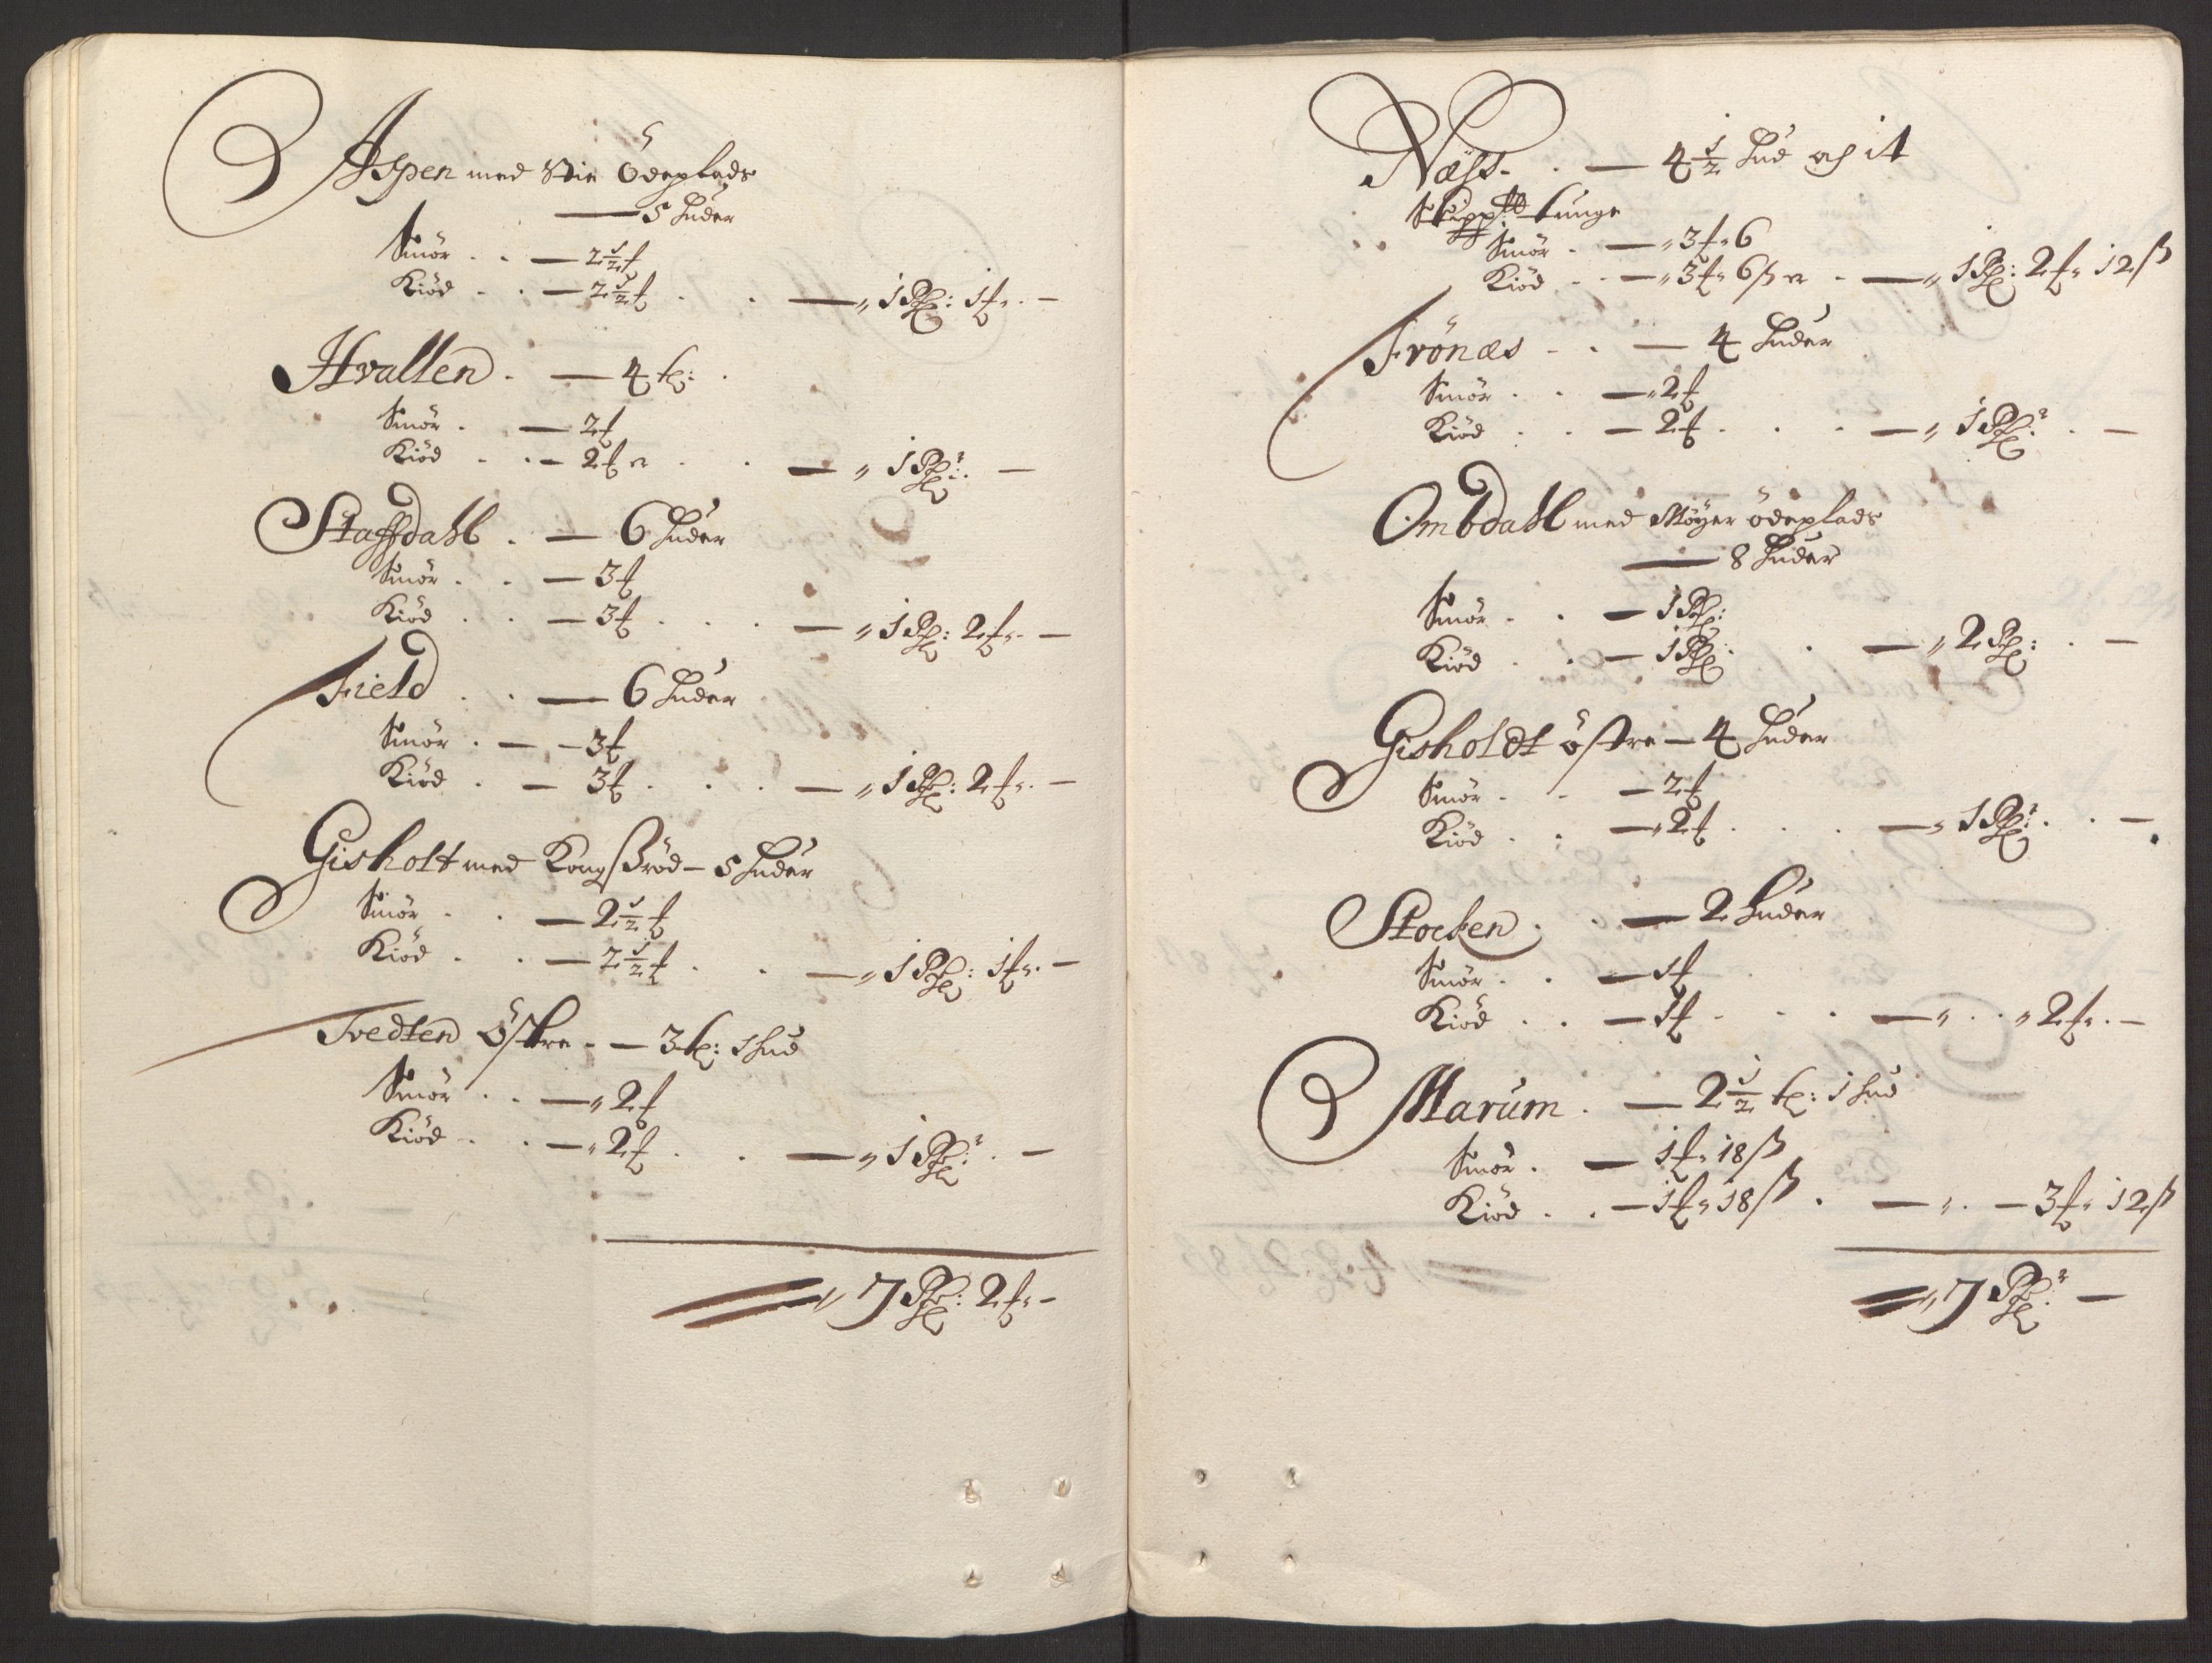 Aspen med  Ödeplads
— 5 Huder
Smör . . — 2 1/2 f
Kiöd . . — 2 1/2 f . . — „ 1 Rp: 1 f „ . —
Hvallen . — 4 tp: .
Smör . — 2 f
Kiöd . . — 2 f . . — „ 1 Rp: . —
Staffdahl . — 6 Huder
Smör . . — 3 f
Kiöd . . — 3 f . . . — „ 1 Rp: 2 f „ . —
Field . . — 6 Huder
Smör . — – 3 f
Kiöd . — 3 f . . . — „ 1 Rp: 2 f „ . —
Gisholt med Kongßröd – 5 Huder
Smör . . — 2 1/2 f
Kiöd . . — 2 1/2 f . . — „ 1 Rp: 1 f „ . —
Tvedten Östre - — 3 tp: 1 Hud
Smör . . — „ 2 f
Kiöd . . — „ 2 f . . — „ 1 Rp: . —
„ 7 Rp: 2 f „ —
Næss . . — 4 1/2 Hud och it
Skipp tunge
Smör . — „ 3 f „ 6
Kiöd . . — „ 3 f „ 6 ß . — „ 1 Rp: 2 f „ 12 ß
Frönæs - . — 4 Huder
Smör . . — „ 2 f
Kiöd . . — 2 f . . . — „ 1 Rp: . —
Ombdahl med Möyer ödeplads
— 8 Huder
Smör . . — 1 Rp:
Kiöd . . — 1 Rp: . — „ 2 Rp: . —
Gisholdt östre — 4 Huder
Smör . - — 2 f
Kiöd . . — „ 2 f . . . — „ 1 Rp: . . —
Stocken . . — 2 Huder
Smör . . — 1 f
Kiöd . . — 1 f . . . — „ . . „ 2 f „ . —
Marum . — 2 1/2 tp: 1 Hud
Smör . — 1 f „ 18 ß
Kiöd . . — 1 f „ 18 ß . — „ . — 3 f „ 12 ß
„ 7 Rp: —